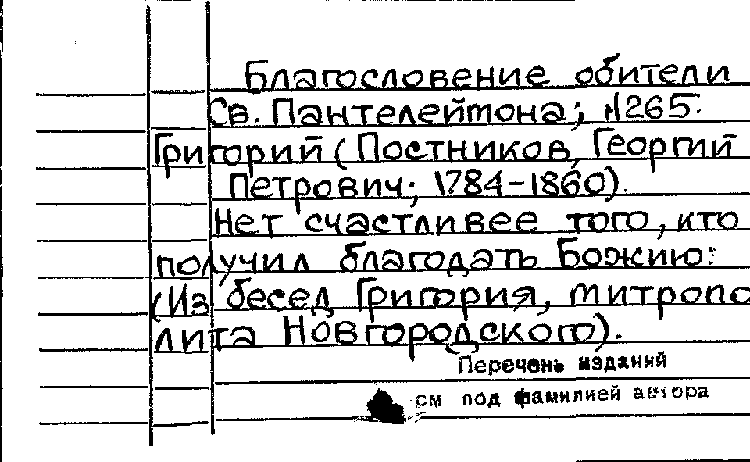 Благословение обители
Св. Пантелеймона; №265.
Григорий (Постников, Георгий
Петрович; 1784-1860).
Нет счастливее того, кто
получил благодать Божию:
(Из бесед Григория, митропо
лита Новгородского).
Перечень изданий
см под фамилией автора